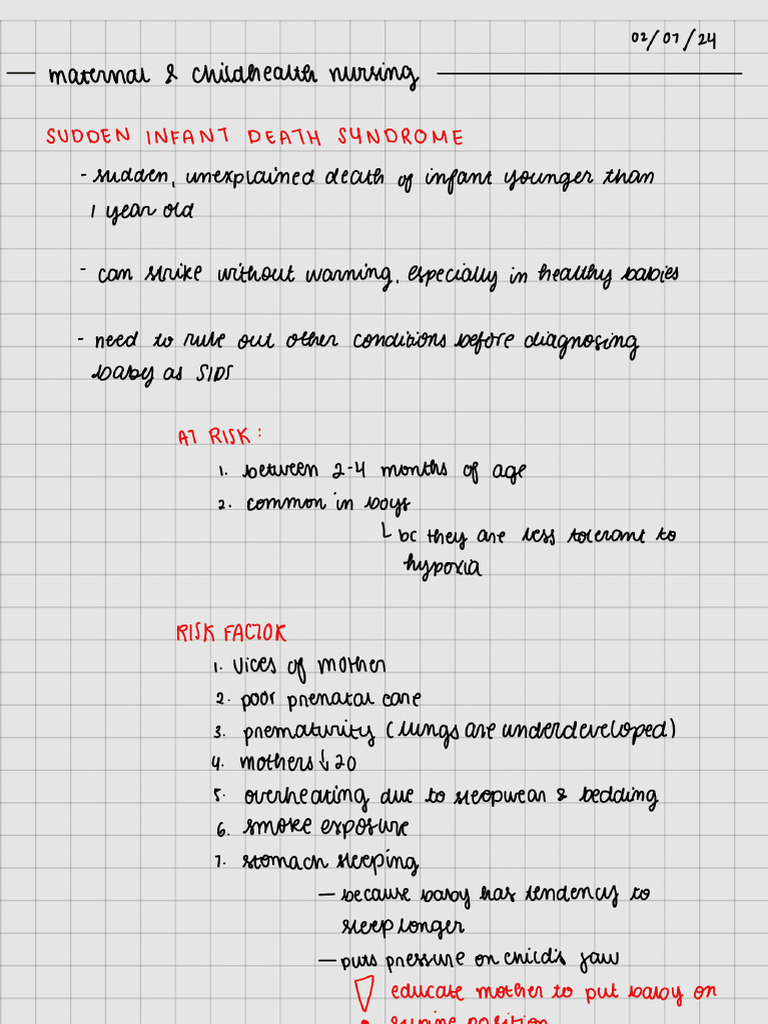 02/07/24
maternal & childhealth nursing
SUDDEN INFANT DEATH SYNDROME
- sudden, unexplained death of infant younger than
1 year old
- can strike without warning, especially in healthy babies
- need to rule out other conditions before diagnosing
baby as SIDS
AT RISK:
1. between 2-4 months of age
2. common in boys
└ bc they are less tolerant to
hypoxia
RISK FACTOR
1. vices of mother
2. poor prenatal care
3. prematurity (lungs are underdeveloped)
4. mothers ↓ 20
5. overheating due to sleepwear & bedding
6. smoke exposure
7. stomach sleeping
— because baby has tendency to
sleep longer
— puts pressure on child's jaw
! educate mother to put baby on
supine position